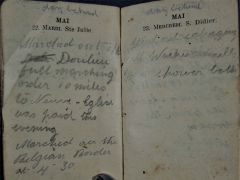 day behind
MAI
22. MARDI. Ste Julie.
Marched out
Doulieu
full marching
order 10 miles
to Neuve-Eglise
was paid this
evening
Marched over the
Belgian Border
at 4-30
day behind
MAI
23. MERCREDI. S. Didier.
shower bath